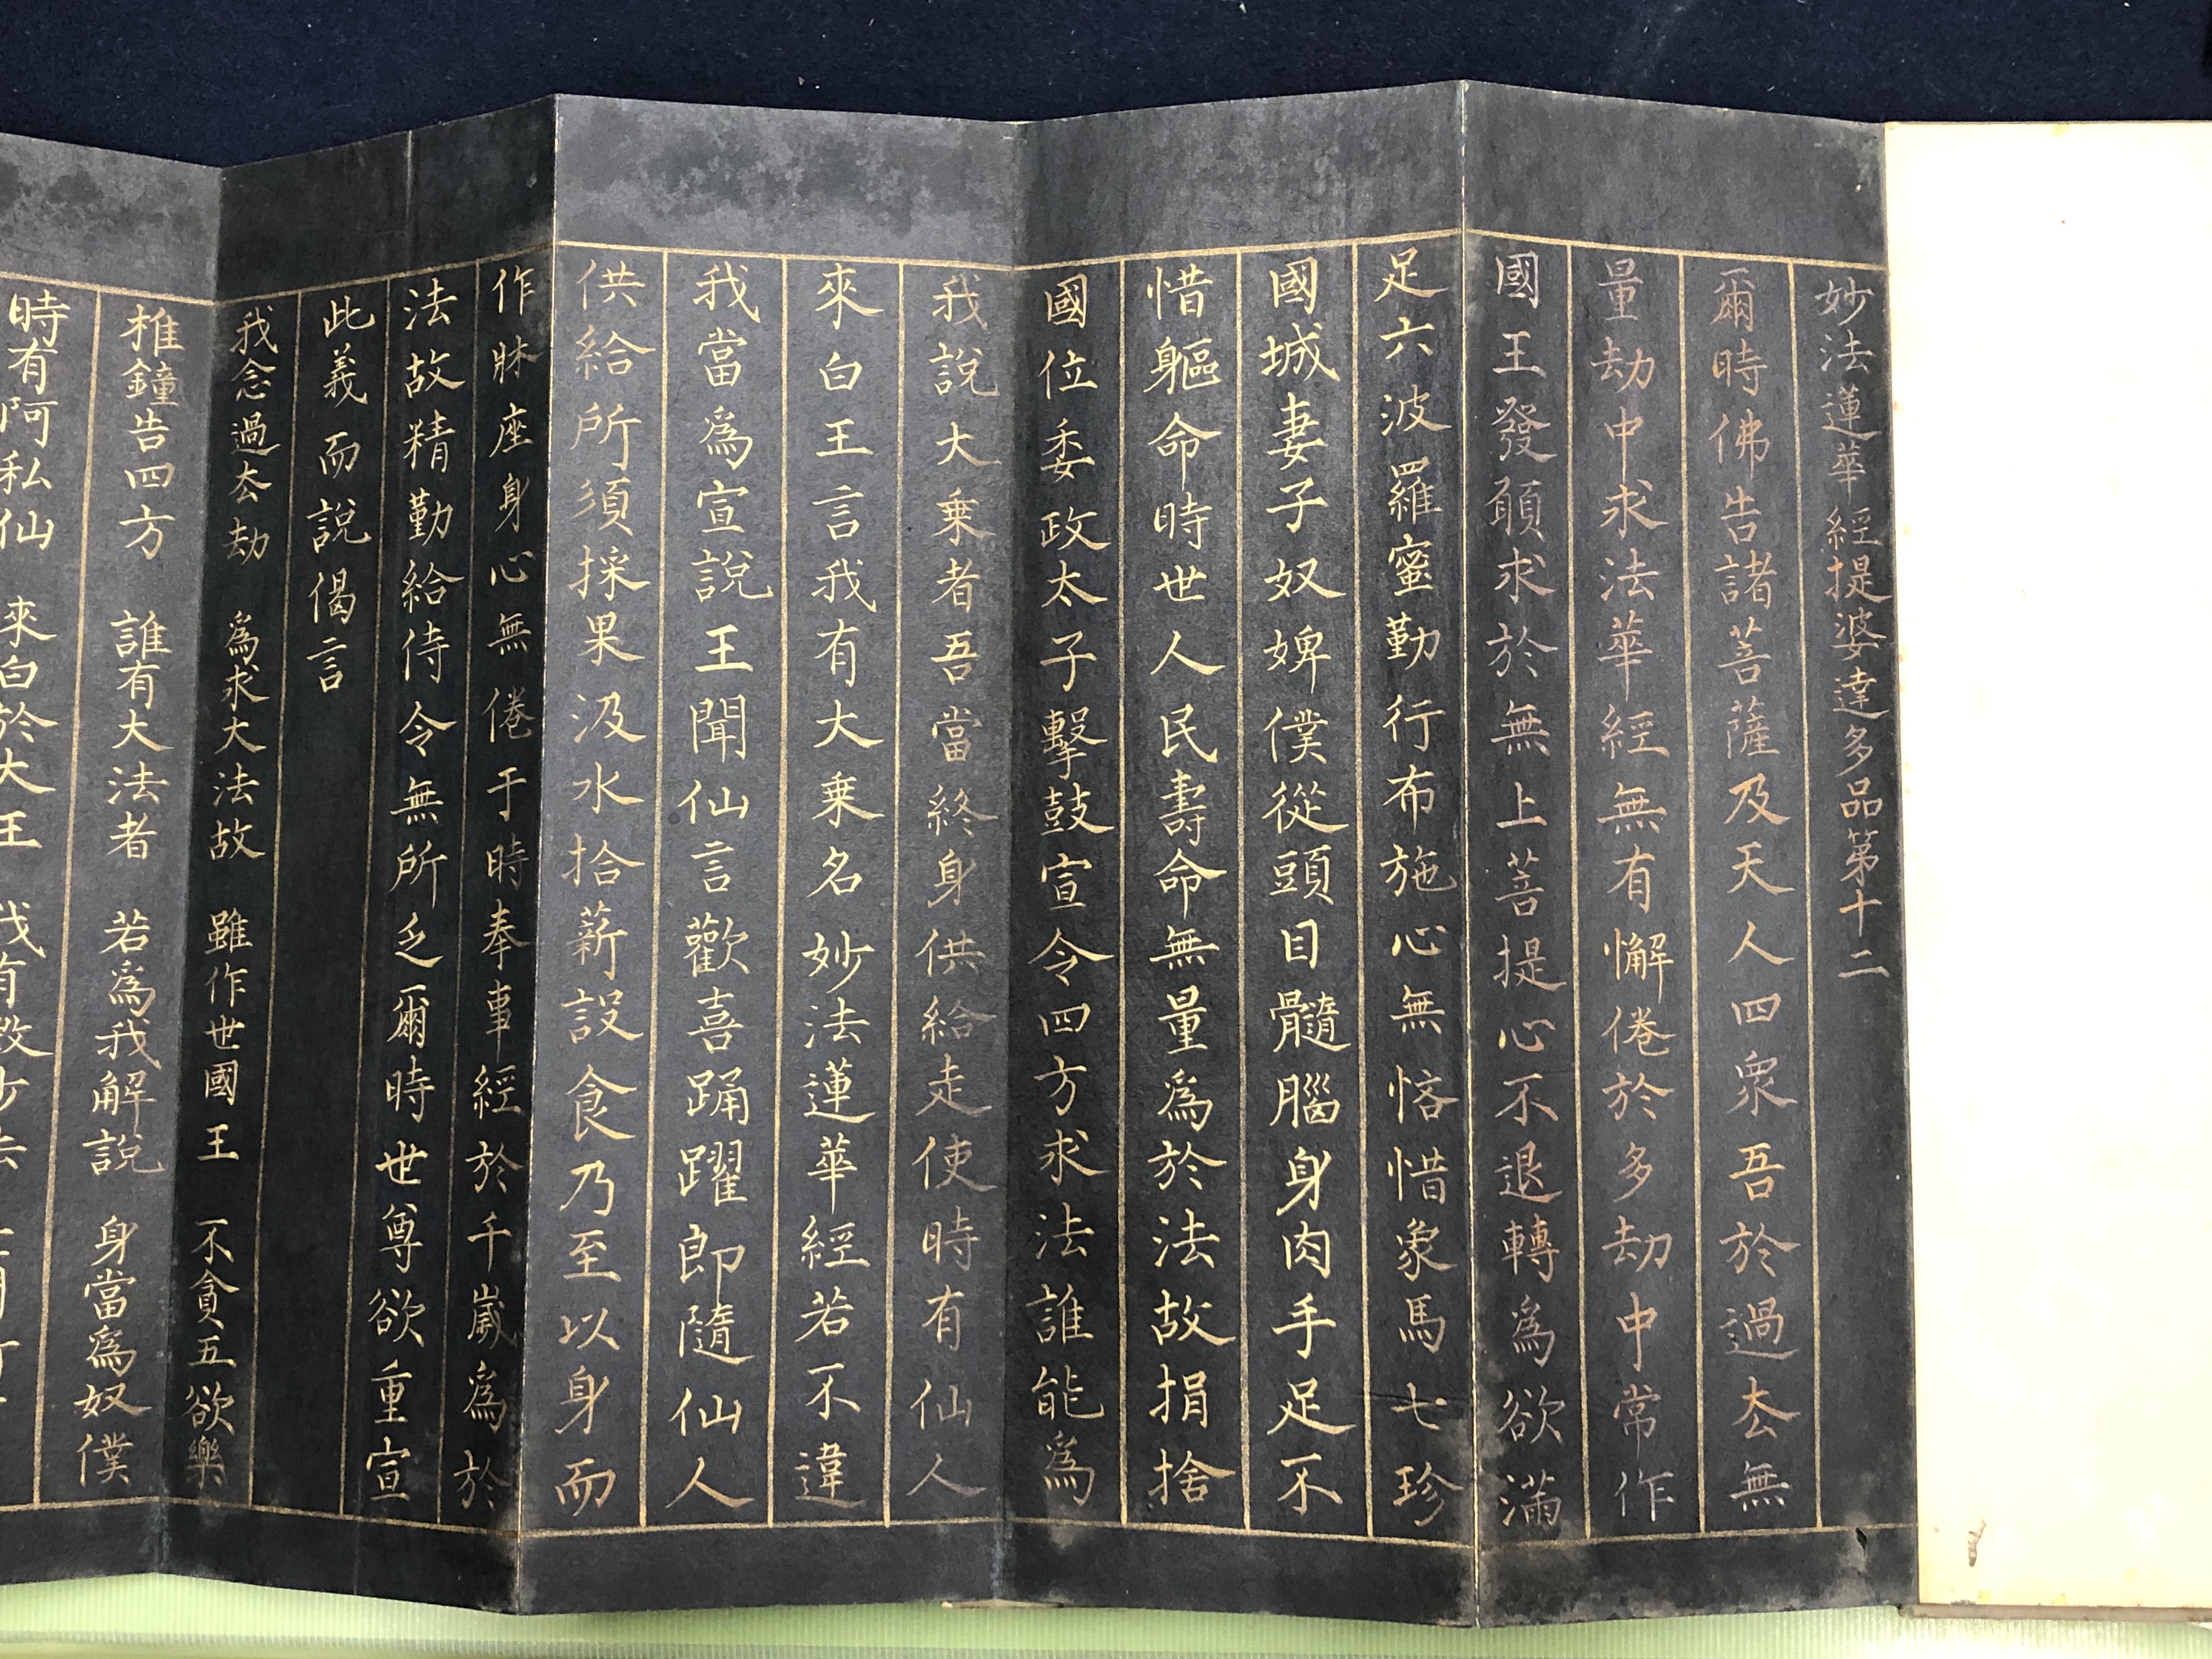 妙法蓮華經提婆達多品第十二
爾時佛告諸菩薩及天人四衆吾於過去無
量劫中求法華經無有懈倦於多劫中常作
國王發願求於無上菩提心不退轉爲欲滿
足六波羅蜜勤行布施心無悋惜象馬七珍
國城妻子奴婢僕從頭目髓腦身肉手足不
惜軀命時世人民壽命無量爲於法故捐捨
國位委政太子擊鼓宣令四方求法誰能爲
我說大乗者吾當終身供給走使時有仙人
來白王言我有大乗名妙法蓮華經若不違
我當爲宣說王聞仙言歡喜踊躍即隨仙人
供給所須採果汲水拾薪設食乃至以身而
作牀座身心無倦于時奉事經於千歲爲於
法故精勤給侍令無所乏爾時世尊欲重宣
此義而說偈言
我念過去劫　爲求大法故　雖作世國王　不貪五欲樂
椎鐘告四方　誰有大法者　若爲我解說　身當爲奴僕
時有阿私仙　來白於大王　我有微妙法